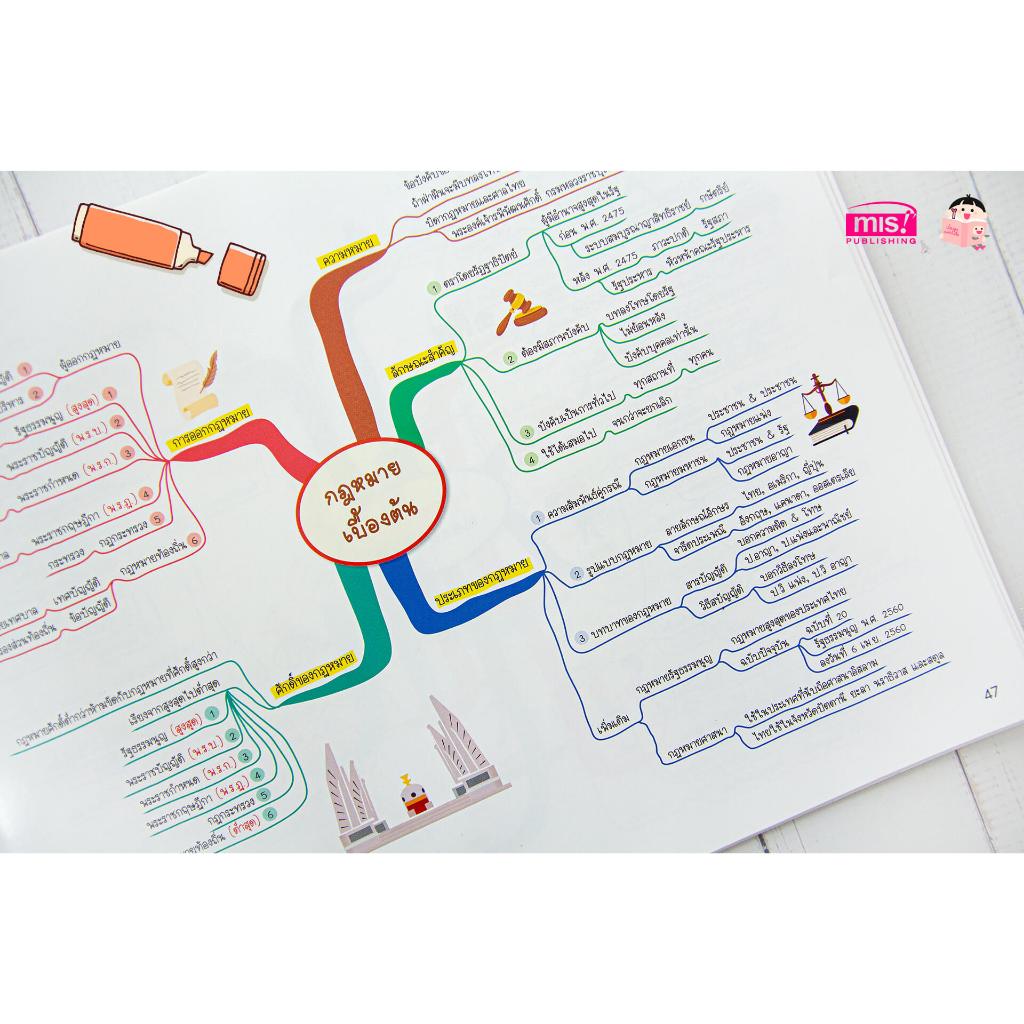 mis!
PUBLISHING
กฎหมาย
เบื้องต้น
ความหมาย
ถ้าฝ่าฝืนจะมีบทลงโทษ
บิดากฎหมายและศาลไทย
พระองค์เจ้ารพีพัฒนศักดิ์ กรมหลวงราชบุรี
ลักษณะสำคัญ
1 ตราโดยรัฏฐาธิปัตย์
ผู้มีอำนาจสูงสุดในรัฐ
ก่อน พ.ศ. 2475
ระบอบสมบูรณาญาสิทธิราชย์ กษัตริย์
หลัง พ.ศ. 2475 ภาวะปกติ รัฐสภา
รัฐประหาร หัวหน้าคณะรัฐประหาร
2 ต้องมีสภาพบังคับ
บทลงโทษโดยรัฐ
ไม่ย้อนหลัง
บังคับบุคคลเท่านั้น
3 บังคับเป็นการทั่วไป ทุกสถานที่ ทุกคน
4 ใช้ได้เสมอไป จนกว่าจะยกเลิก
ประเภทของกฎหมาย
1 ความสัมพันธ์คู่กรณี
กฎหมายเอกชน
ประชาชน & ประชาชน
กฎหมายแพ่ง
กฎหมายมหาชน
ประชาชน & รัฐ
กฎหมายอาญา
2 รูปแบบกฎหมาย
ลายลักษณ์อักษร ไทย, อเมริกา, ญี่ปุ่น
จารีตประเพณี อังกฤษ, แคนาดา, ออสเตรเลีย
3 บทบาทของกฎหมาย
สารบัญญัติ
บอกความผิด & โทษ
ป.อาญา, ป.แพ่งและพาณิชย์
วิธีสบัญญัติ
บอกวิธีลงโทษ
ป.วิ แพ่ง, ป.วิ อาญา
เพิ่มเติม
กฎหมายรัฐธรรมนูญ
กฎหมายสูงสุดของประเทศไทย
ฉบับปัจจุบัน
ฉบับที่ 20
รัฐธรรมนูญ พ.ศ. 2560
ลงวันที่ 6 เม.ย. 2560
กฎหมายศาสนา
ใช้ในประเทศที่นับถือศาสนาอิสลาม
ไทยใช้ในจังหวัดปัตตานี ยะลา นราธิวาส และสตูล
47
การออกกฎหมาย
ผู้ออกกฎหมาย
1
2
รัฐธรรมนูญ (สูงสุด) 1
พระราชบัญญัติ (พ.ร.บ.) 2
พระราชกำหนด (พ.ร.ก.) 3
พระราชกฤษฎีกา (พ.ร.ฎ.) 4
กระทรวง กฎกระทรวง 5
กฎหมายท้องถิ่น 6
เทศบาล เทศบัญญัติ
องส่วนท้องถิ่น ข้อบัญญัติ
ศักดิ์ของกฎหมาย
กฎหมายศักดิ์ต่ำกว่าห้ามขัดกับกฎหมายที่ศักดิ์สูงกว่า
เรียงจากสูงสุดไปต่ำสุด
รัฐธรรมนูญ (สูงสุด) 1
พระราชบัญญัติ (พ.ร.บ.) 2
พระราชกำหนด (พ.ร.ก.) 3
พระราชกฤษฎีกา (พ.ร.ฎ.) 4
กฎกระทรวง 5
ท้องถิ่น (ต่ำสุด) 6